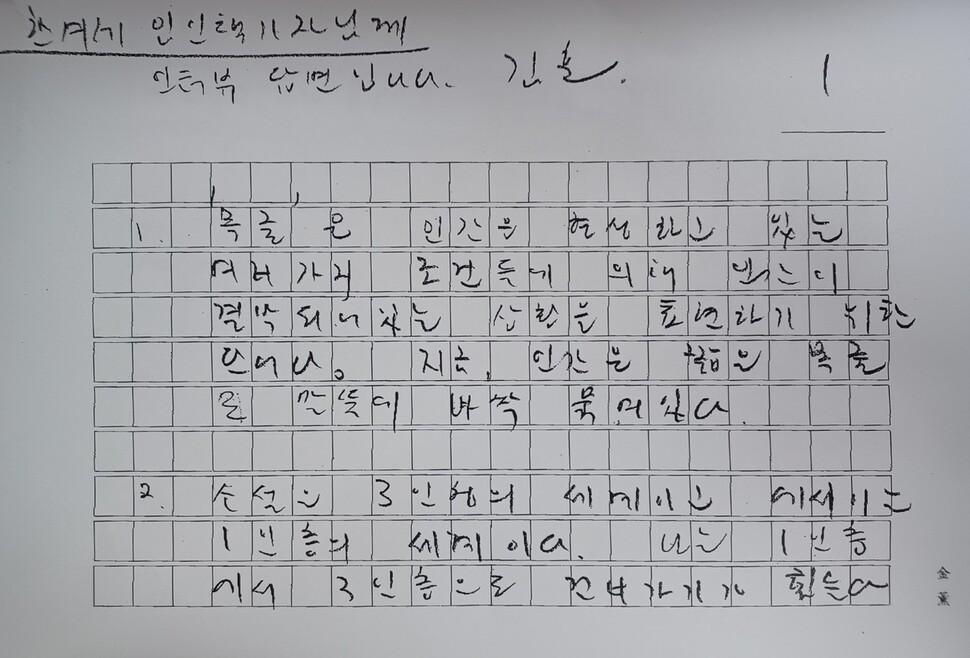 한겨레 인인택 기자님께
인터뷰 답변입니다. 김훈.
1
1. '목줄'은 인간을 형성하고 있는
여러 가지 조건들에 의해
결박되어 있는 상황을 표현하기 위한
단어다. 지금, 인간은 짧은 목줄
로 말뚝에 바싹 묶여있다.
2. 소설은 3인칭의 세계이고 에세이는
1인칭의 세계이다. 나는 1인칭
에서 3인칭으로 건너가기가 힘들다
金薰